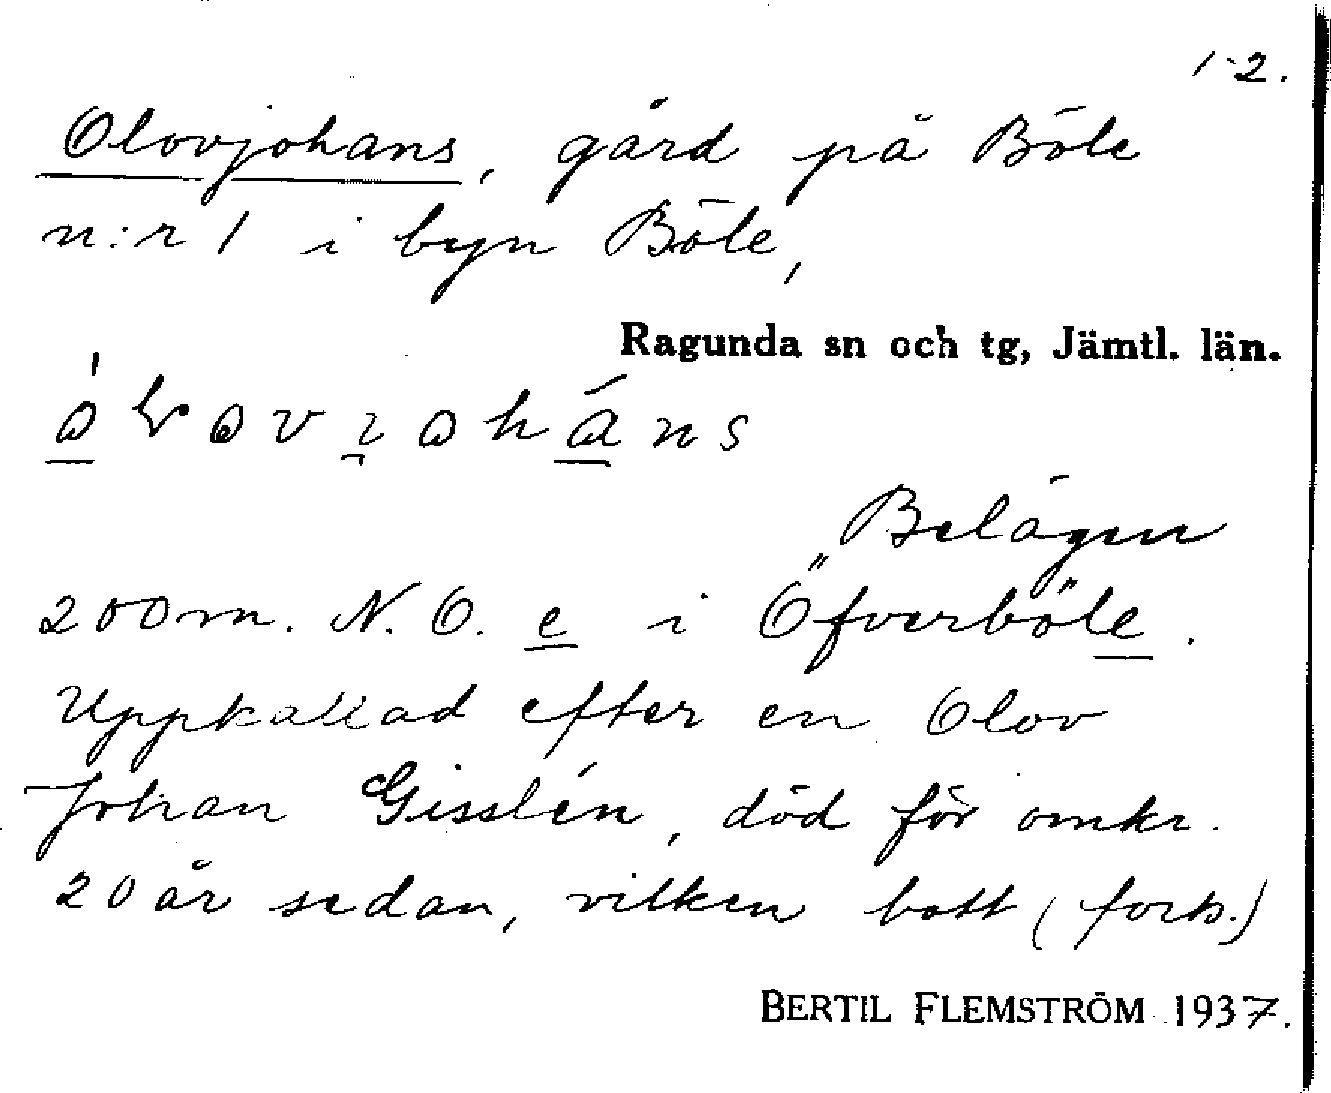 1-2.
Olovjohans, gård på Böle
n:r 1 i byn Böle,
Ragunda sn och tg, Jämtl. län.
Belägen
200 m. N. O. e i Öfverböle.
Uppkallad efter en Olov
Johan Gisslén, död för omkr.
20 år sedan, vilken bott (forts.)
BERTIL FLEMSTRÖM 1937.